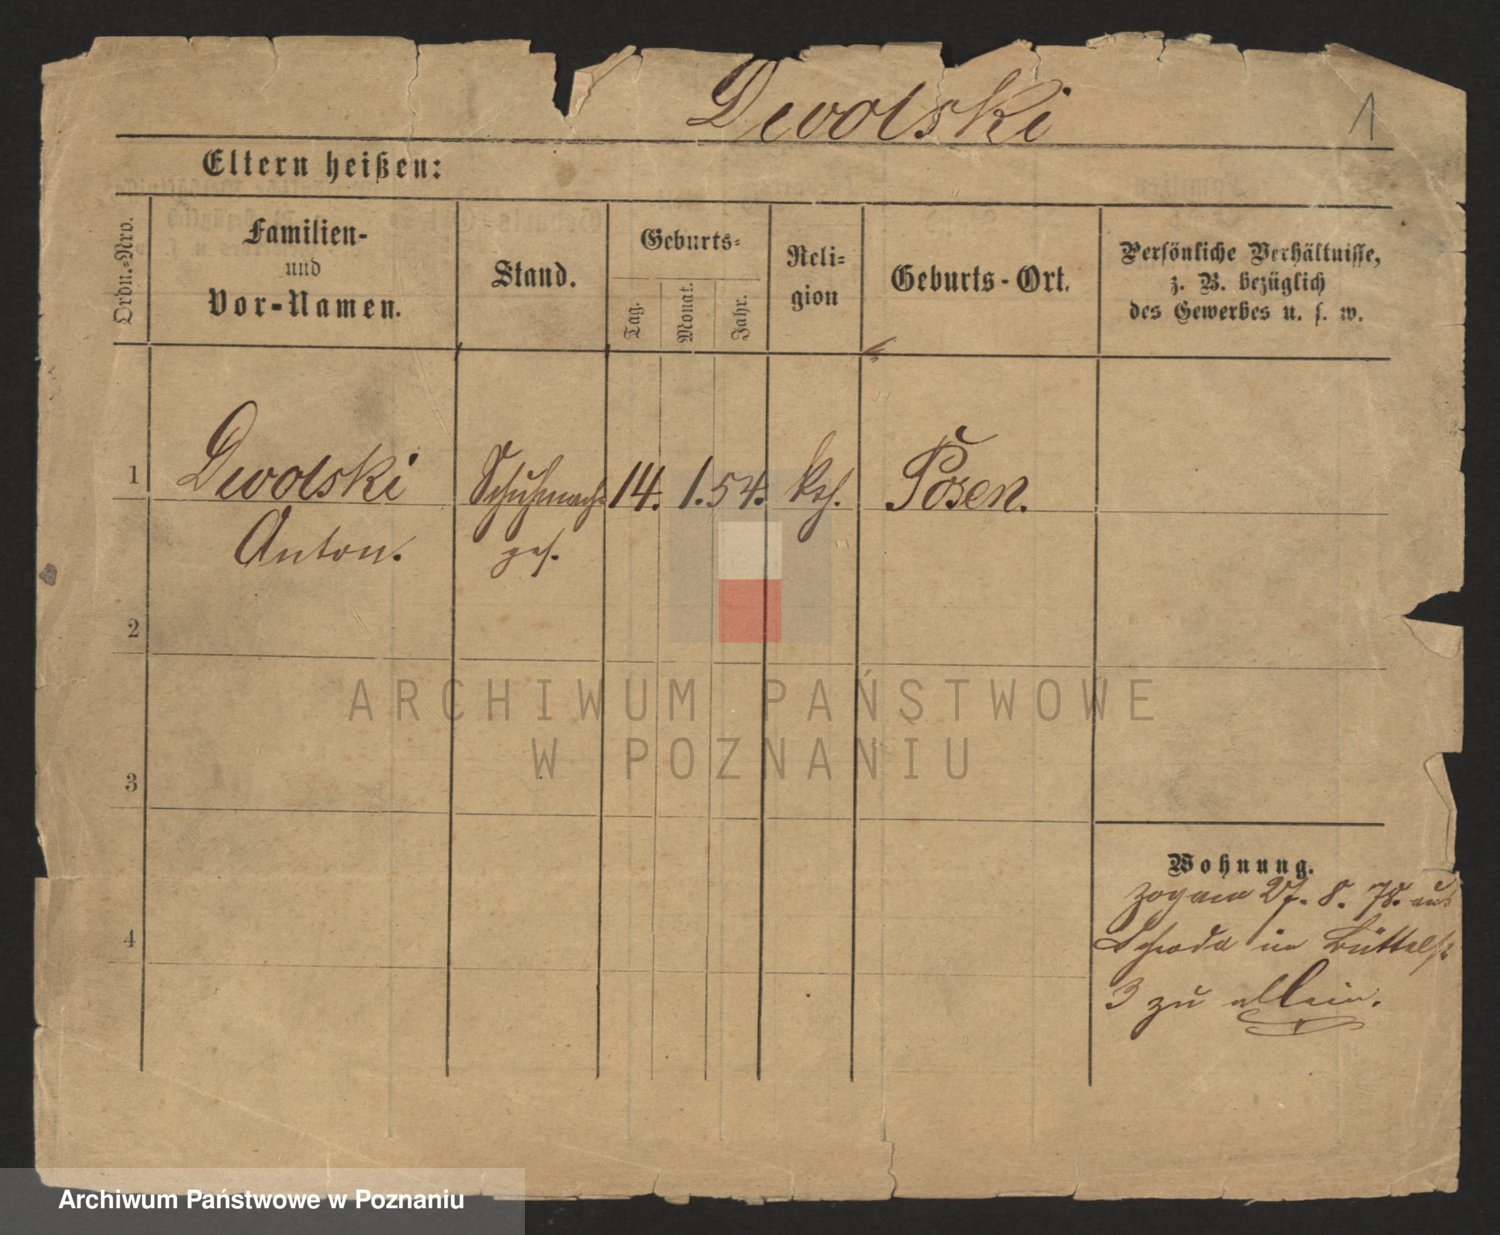 Dwolski
1
Eltern heißen:
Ordn.-Nro.
Familien-
und
Vor-Namen.
Stand.
Geburts-
Tag.
Monat.
Jahr.
Reli-
gion
Geburts-Ort.
Persönliche Verhältnisse,
z. B. bezüglich
des Gewerbes u. s. w.
1 Dwolski Schuhmach- 14. 1. 54. kth. Posen.
Anton. ges.
2
ARCHIWUM PAŃSTWOWE
W POZNANIU
3
Wohnung.
zog am 27. 8. 78. aus
Schroda in Büttelst
4
3 zu allein.
Archiwum Państwowe w Poznaniu